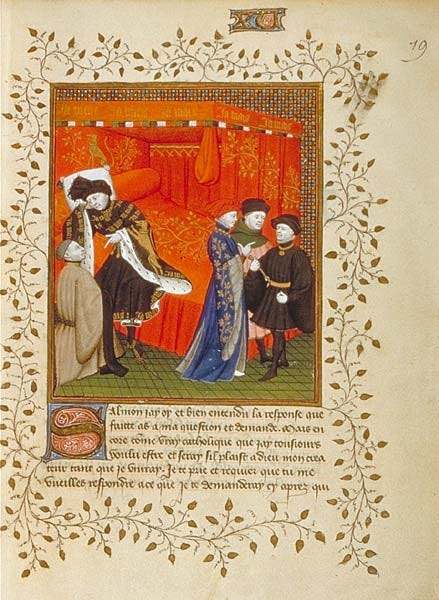 19
Salmon jay oy et bien entendu la response que
faitte as a ma question et demande. Mais en
core come vray catholique que jay tousiours
voulu estre et seray sil plaist a dieu mon crea
teur tant que je vivray. Je te prie et requier que tu me
vueilles respondre a ce que je te demanderay cy apres qui